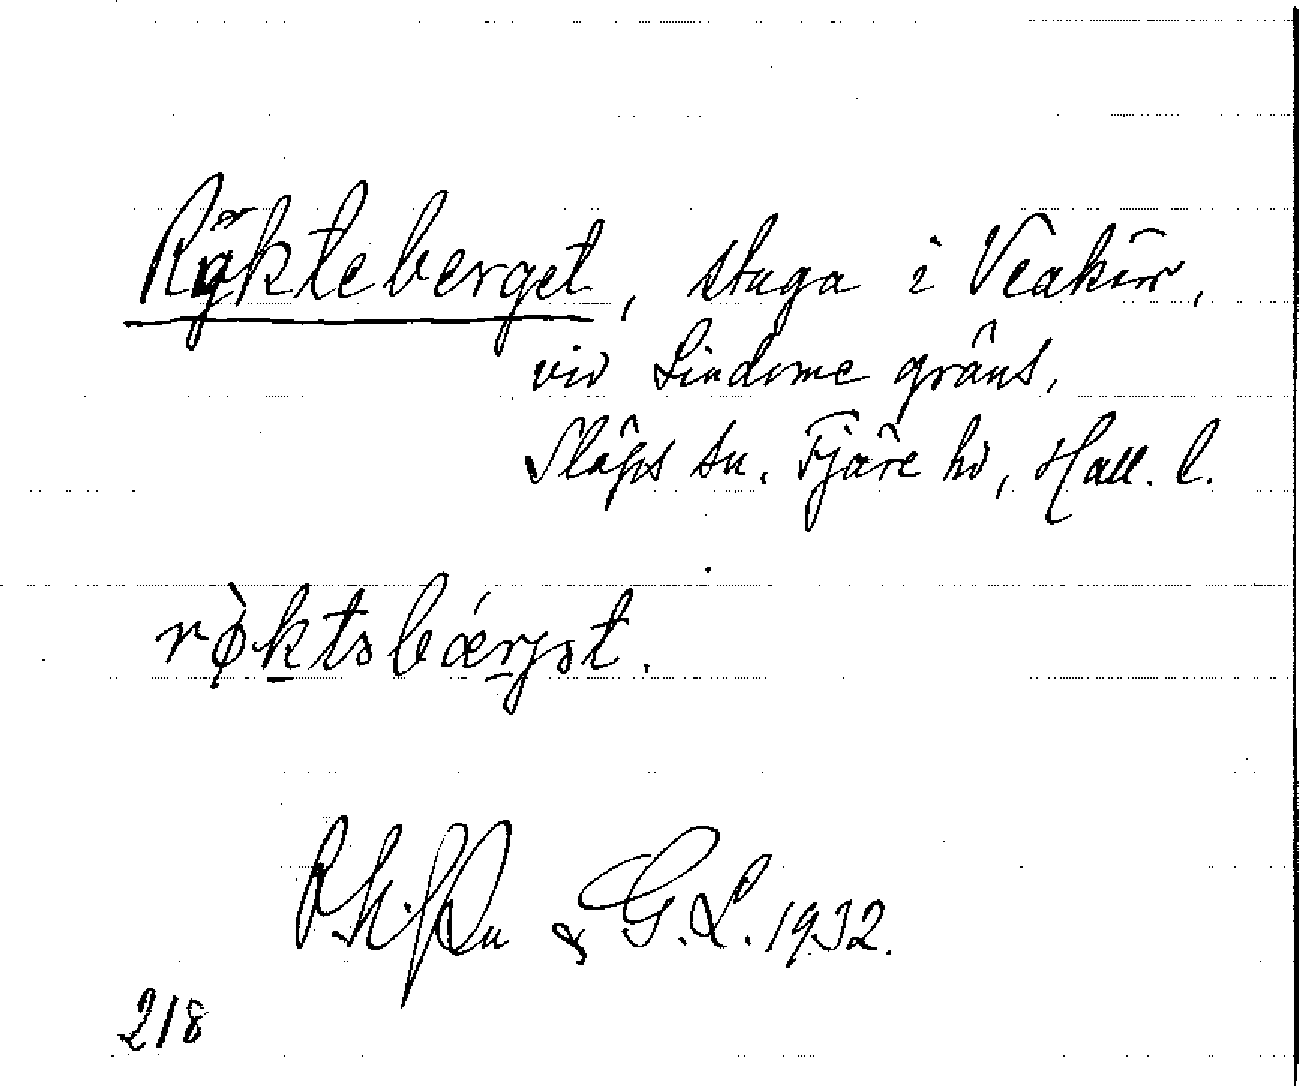 Rykteberget, stuga i Veakärr,
vid Lindome gräns,
Släps sn. Fjäre hd, Hall. l.
rø̀ktəbǽrjət.
& G. L. 1932.
218